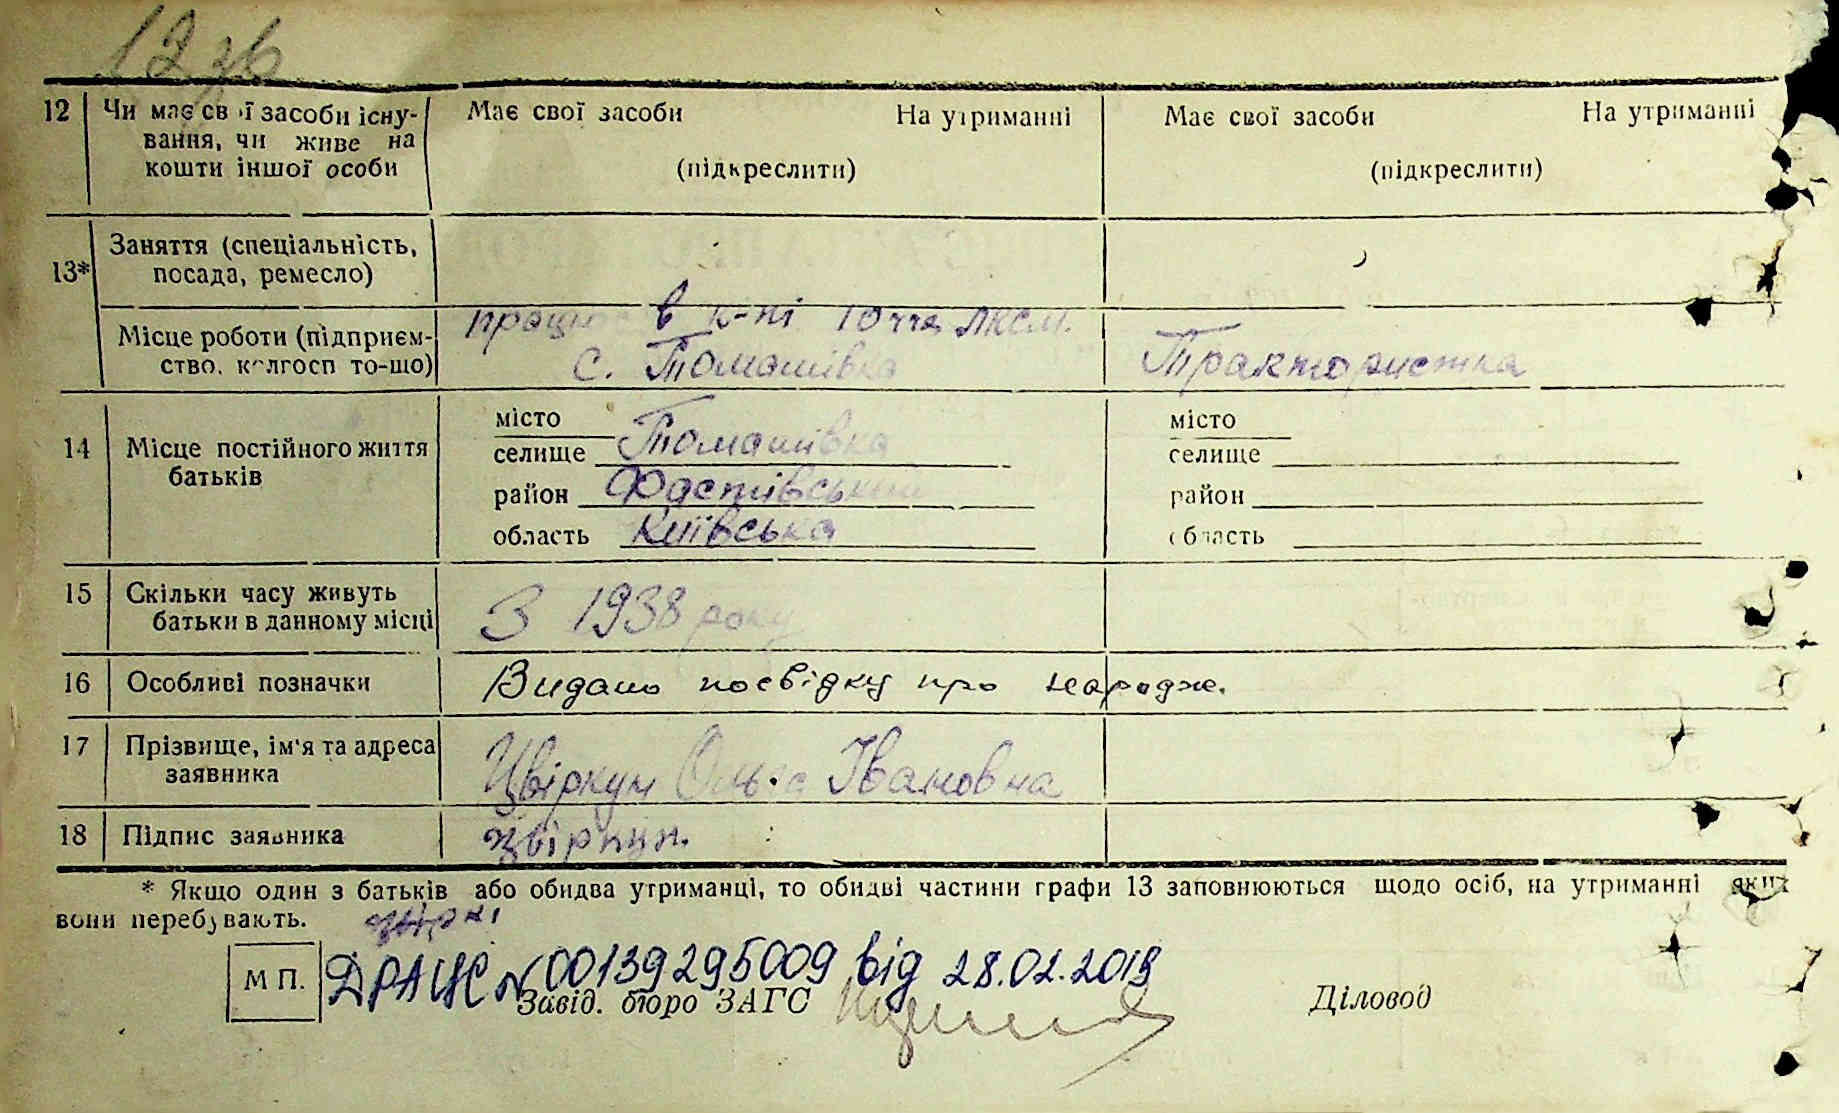 12 зв
12 Чи має свої засоби існу- Має свої засоби На утриманні Має свої засоби На утриманні
вання, чи живе на
кошти іншої особи (підкреслити) (підкреслити)
13* Заняття (спеціальність,
посада, ремесло)
працює в к-пі 10 ччя ЛКСМ.
Місце роботи (підприєм-
ство, колгосп то-що) с. Томашівка Трактористка
14 Місце постійного життя
батьків
місто місто
селище Томашівка селище
район Фастівський район
область Київська область
15 Скільки часу живуть
батьки в данному місці З 1938 року
16 Особливі позначки Видано посвідку про народж.
17 Прізвище, ім'я та адреса
заявника Цвіркун Ольга Івановна
18 Підпис заявника Цвіркун.
* Якщо один з батьків або обидва утриманці, то обидві частини графи 13 заповнюються щодо осіб, на утриманні яких
вони перебувають.
М П. ДРАЦС N 00139295009 від 28.02.2019
Завід. бюро ЗАГС Діловод